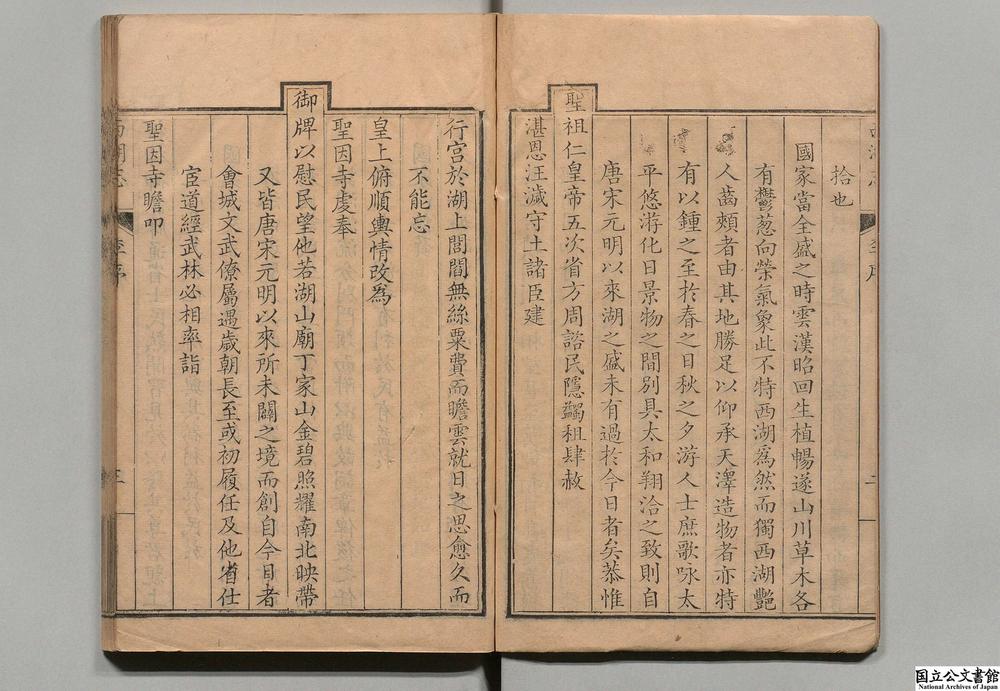 拾也
國家當全盛之時雲漢昭回生植暢遂山川草木各
有鬱葱向榮氣象此不特西湖爲然而獨西湖豔
人齒頰者由其地勝足以仰承天澤造物者亦特
有以鍾之至於春之日秋之夕游人士庶歌咏太
平悠游化日景物之間別具太和翔洽之致則自
唐宋元明以來湖之盛未有過於今日者矣恭惟
聖祖仁皇帝五次省方周諮民隱蠲租肆赦
湛恩汪濊守土諸臣建
行宫於湖上閭閻無絲粟費而瞻雲就日之思愈久而
不能忘
皇上俯順輿情改為
聖因寺虔奉
御牌以慰民望他若湖山廟丁家山金碧照耀南北映帶
又皆唐宋元明以來所未闢之境而創自今日者
會城文武僚屬遇歲朝長至或初履任及他省仕
宦道經武林必相率詣
聖因寺瞻叩
西湖志
李序
三
国立公文書館
National Archives of Japan